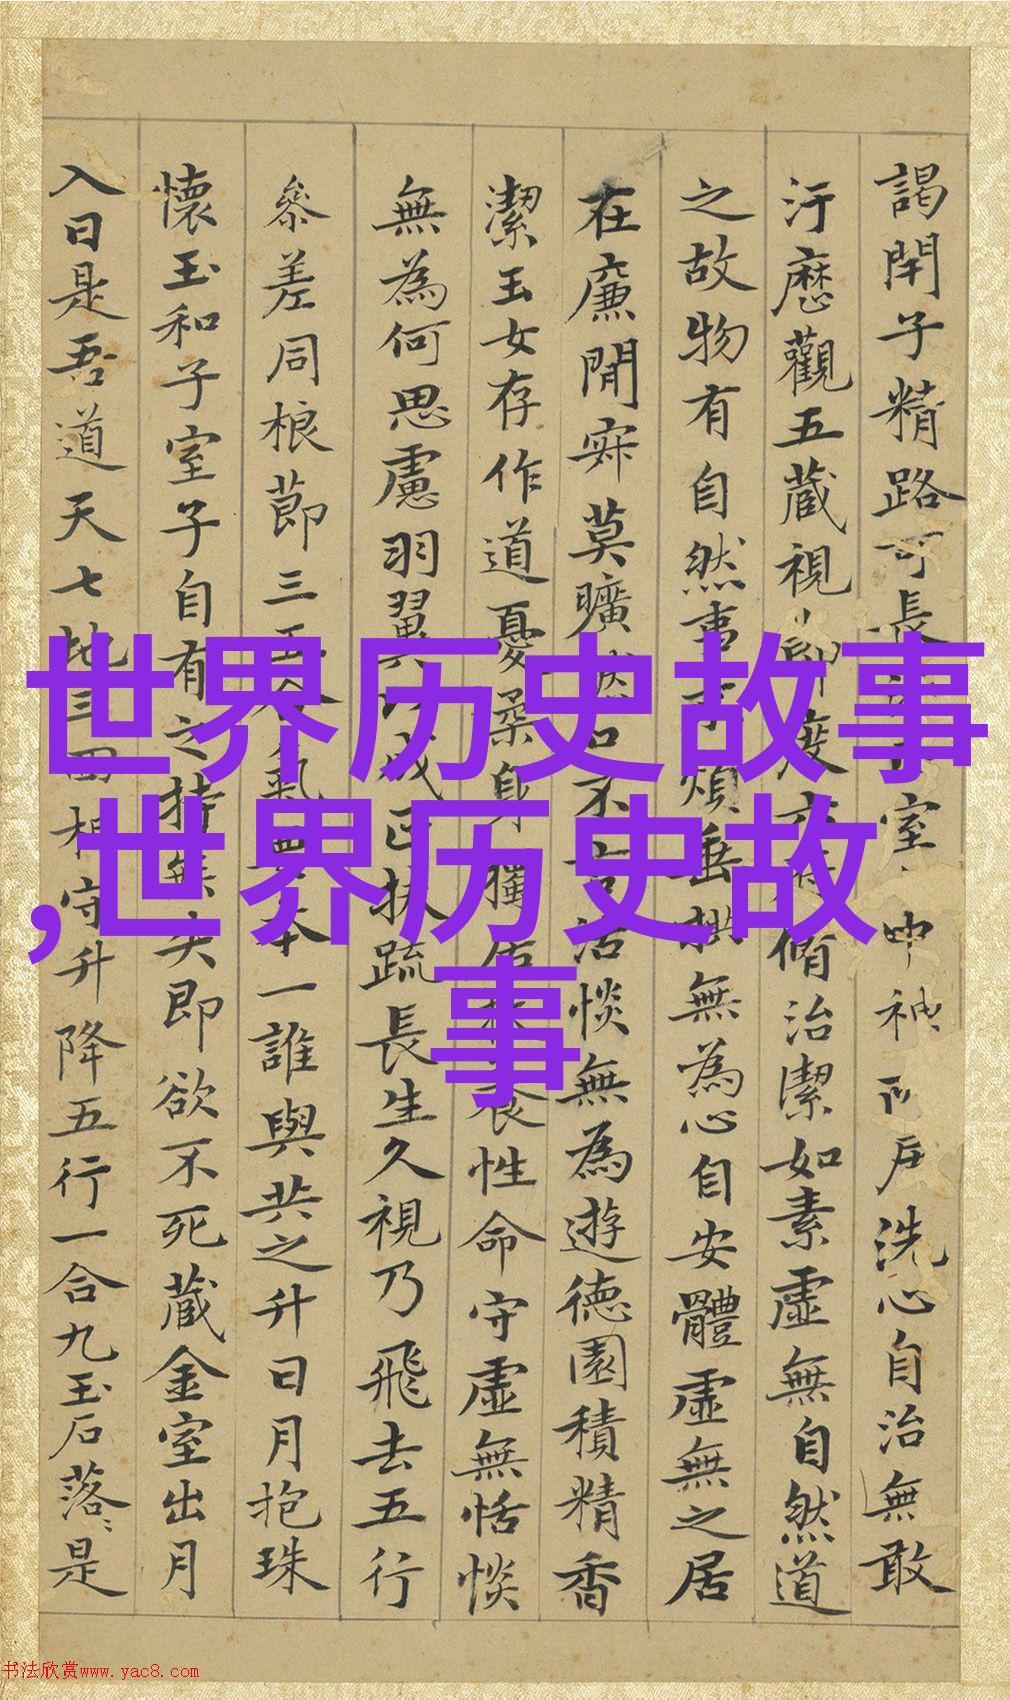 世界历史故事
,世界历史故
事
謁閇子精路可長室中神戶洗心自治無敢
汙歷觀五藏視節度六脩治潔如素虛無自然道
之故物有自然事不煩垂拱無為心自安體虛無之居
在廉閒寂莫曠然口不言恬惔無為遊德園積精香
潔玉女存作道憂柔身獨居養性命守虛無恬惔
無為何思慮羽翼以成正扶疏長生久視乃飛去五行
叅差同根節三五合氣要本一誰與共之升日月抱珠
懷玉和子室子自有之持無失即欲不死藏金室出月
入日是吾道天七地三回相守升降五行一合九玉石落〻是
书法欣赏www.yac8.com